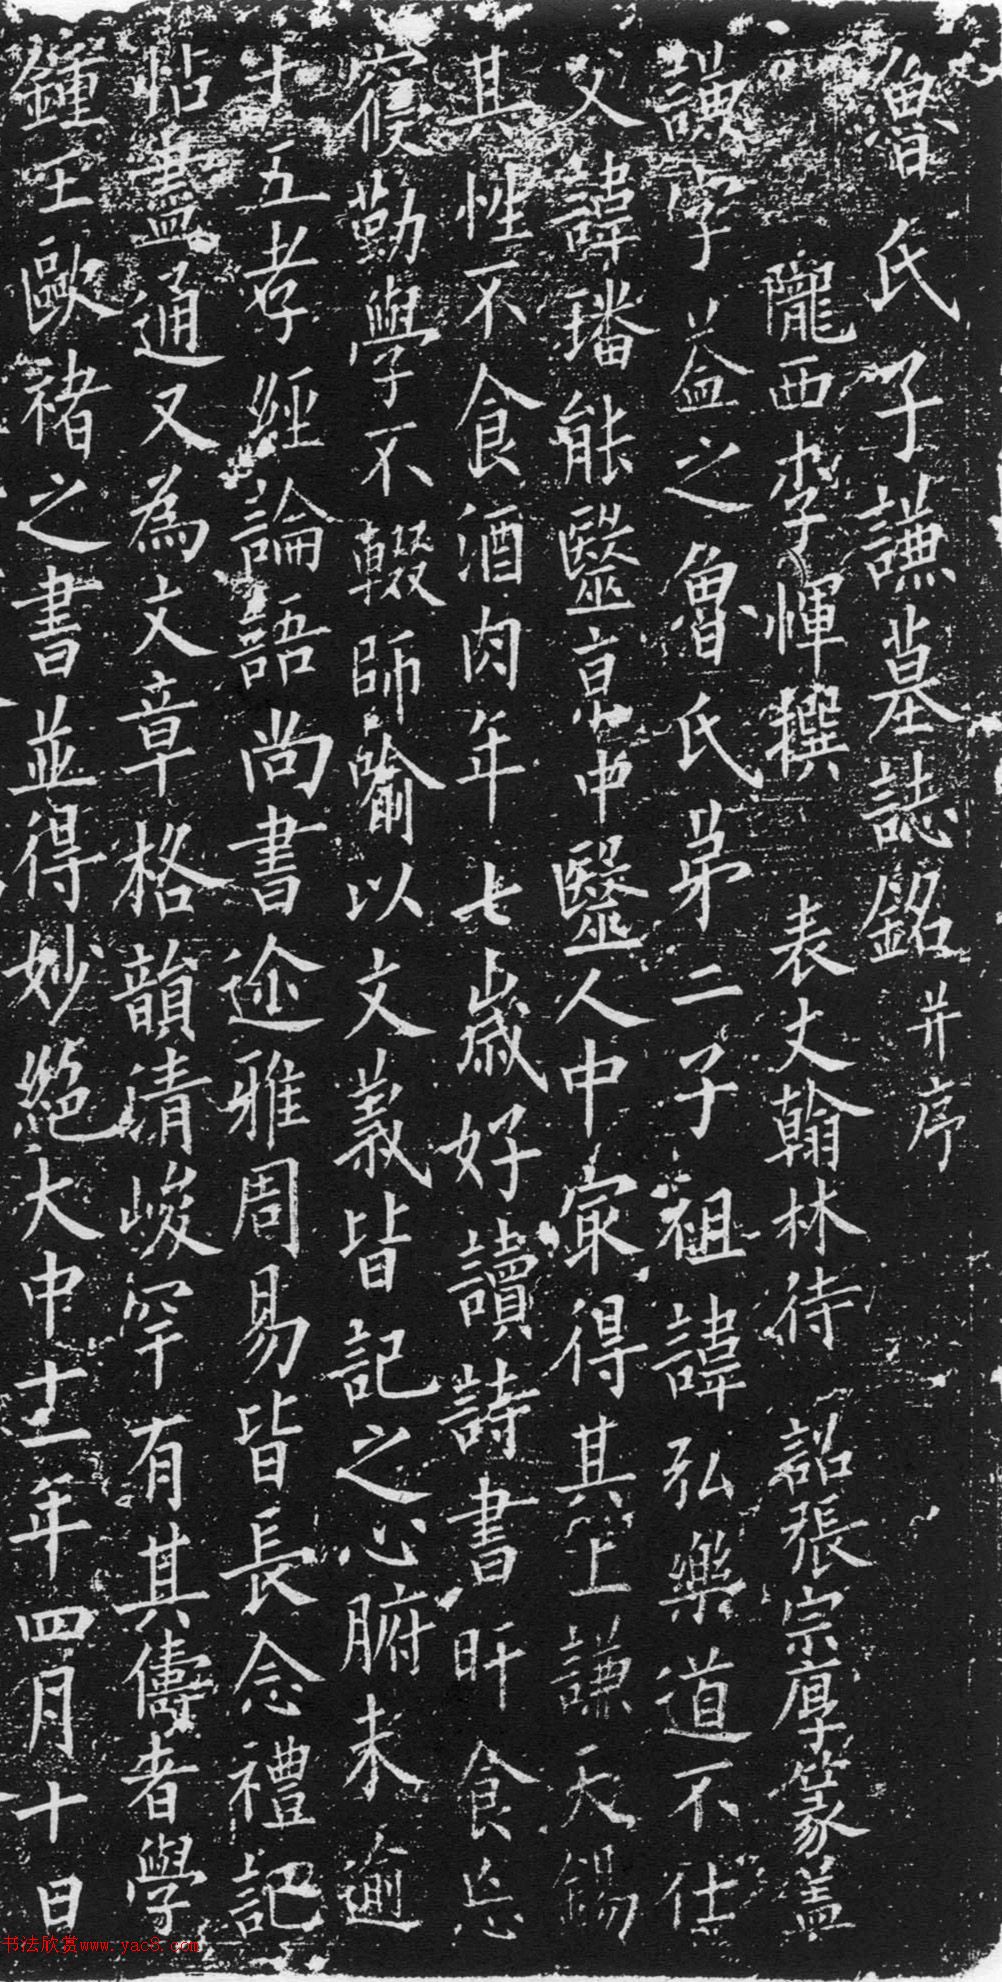 魯氏子謙墓誌銘并序
隴西李惲撰 表丈翰林待 詔張宗厚篆蓋
謙字益之魯氏弟二子祖諱弘樂道不仕
父諱璠能醫京中醫人中㝡得其上謙天錫
其性不食酒肉年七歲好讀詩書旰食忘
寢勤學不輟師喻以文義皆記之心腑未逾
十五孝經論語尚書迩雅周易皆長念禮記
帖盡通又為文章格韻清峻罕有其儔者學
鍾王歐褚之書並得妙絕大中十一年四月十日
书法欣赏www.yac8.com